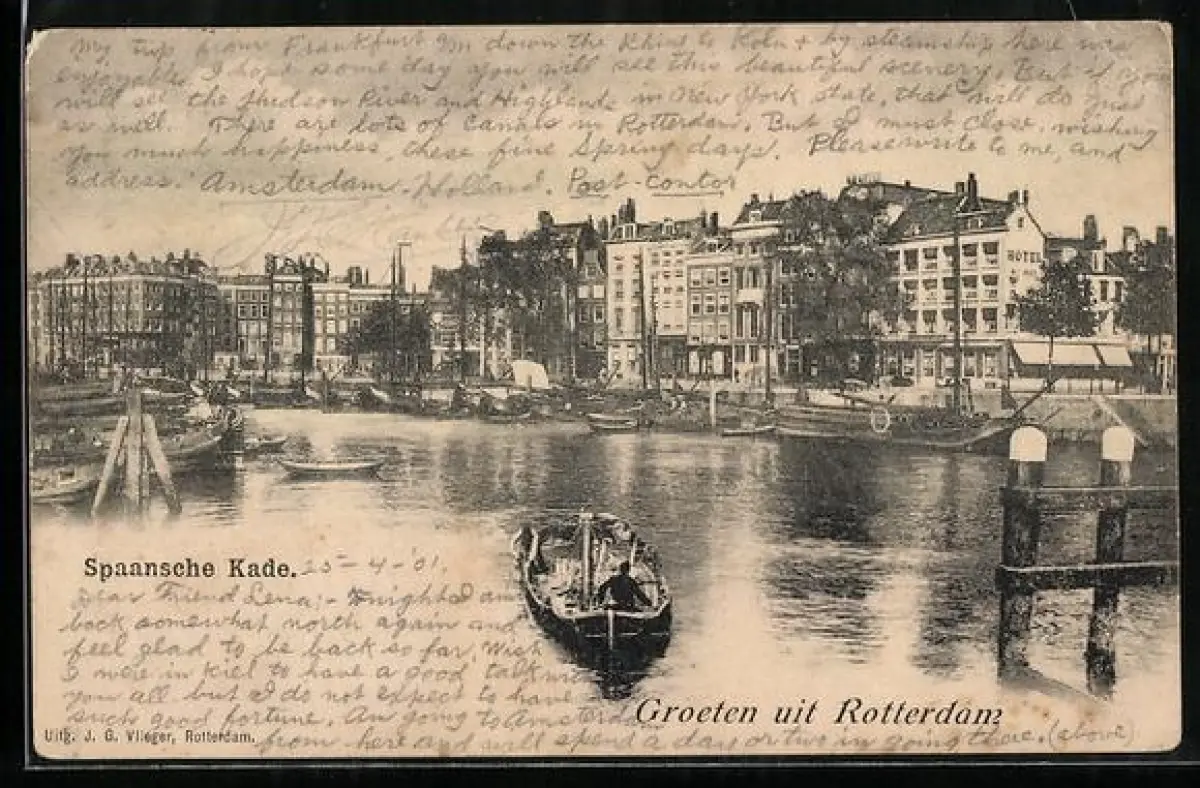 My trip from Frankfurt Am down the Rhine to Koln + by steamship here was
enjoyable. I hope some day you will see this beautiful scenery. But if you
will see the Hudson River and Highlands in New York State, that will do just
as well. There are lots of Canals in Rotterdam. But I must close, wishing
you much happiness, these fine Spring days. Please write to me, and
address: Amsterdam, Holland. Post-contor
HOTEL
Spaansche Kade. 25-4-'01.
Dear Friend Lena;- am
back somewhat north again and
feel glad to be back so far. Wish
I were in Kiel to have a good talk
you all but I do not expect to have
such good fortune. Am going to Amsterdam
Groeten uit Rotterdam
Uitg. J. G. Vlieger, Rotterdam.
from here and will spend a day or two in going there. (above)